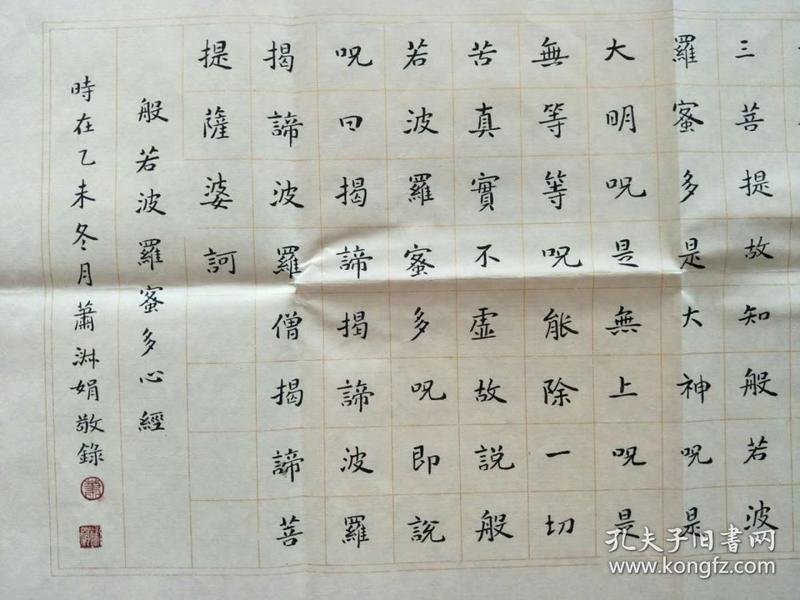 三菩提故知般若波
羅蜜多是大神呪是
大明呪是無上呪是
無等等呪能除一切
苦真實不虛故說般
若波羅蜜多呪即說
呪曰揭諦揭諦波羅
揭諦波羅僧揭諦菩
提薩婆訶
般若波羅蜜多心經
時在乙未冬月蕭淋娟敬錄
孔夫子旧书网
www.kongfz.com